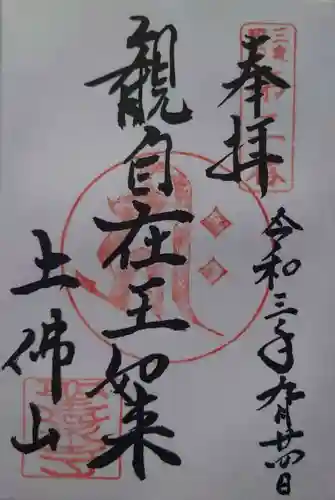 奉拝
令和三年九月廿四日
觀自在王如来
土佛山